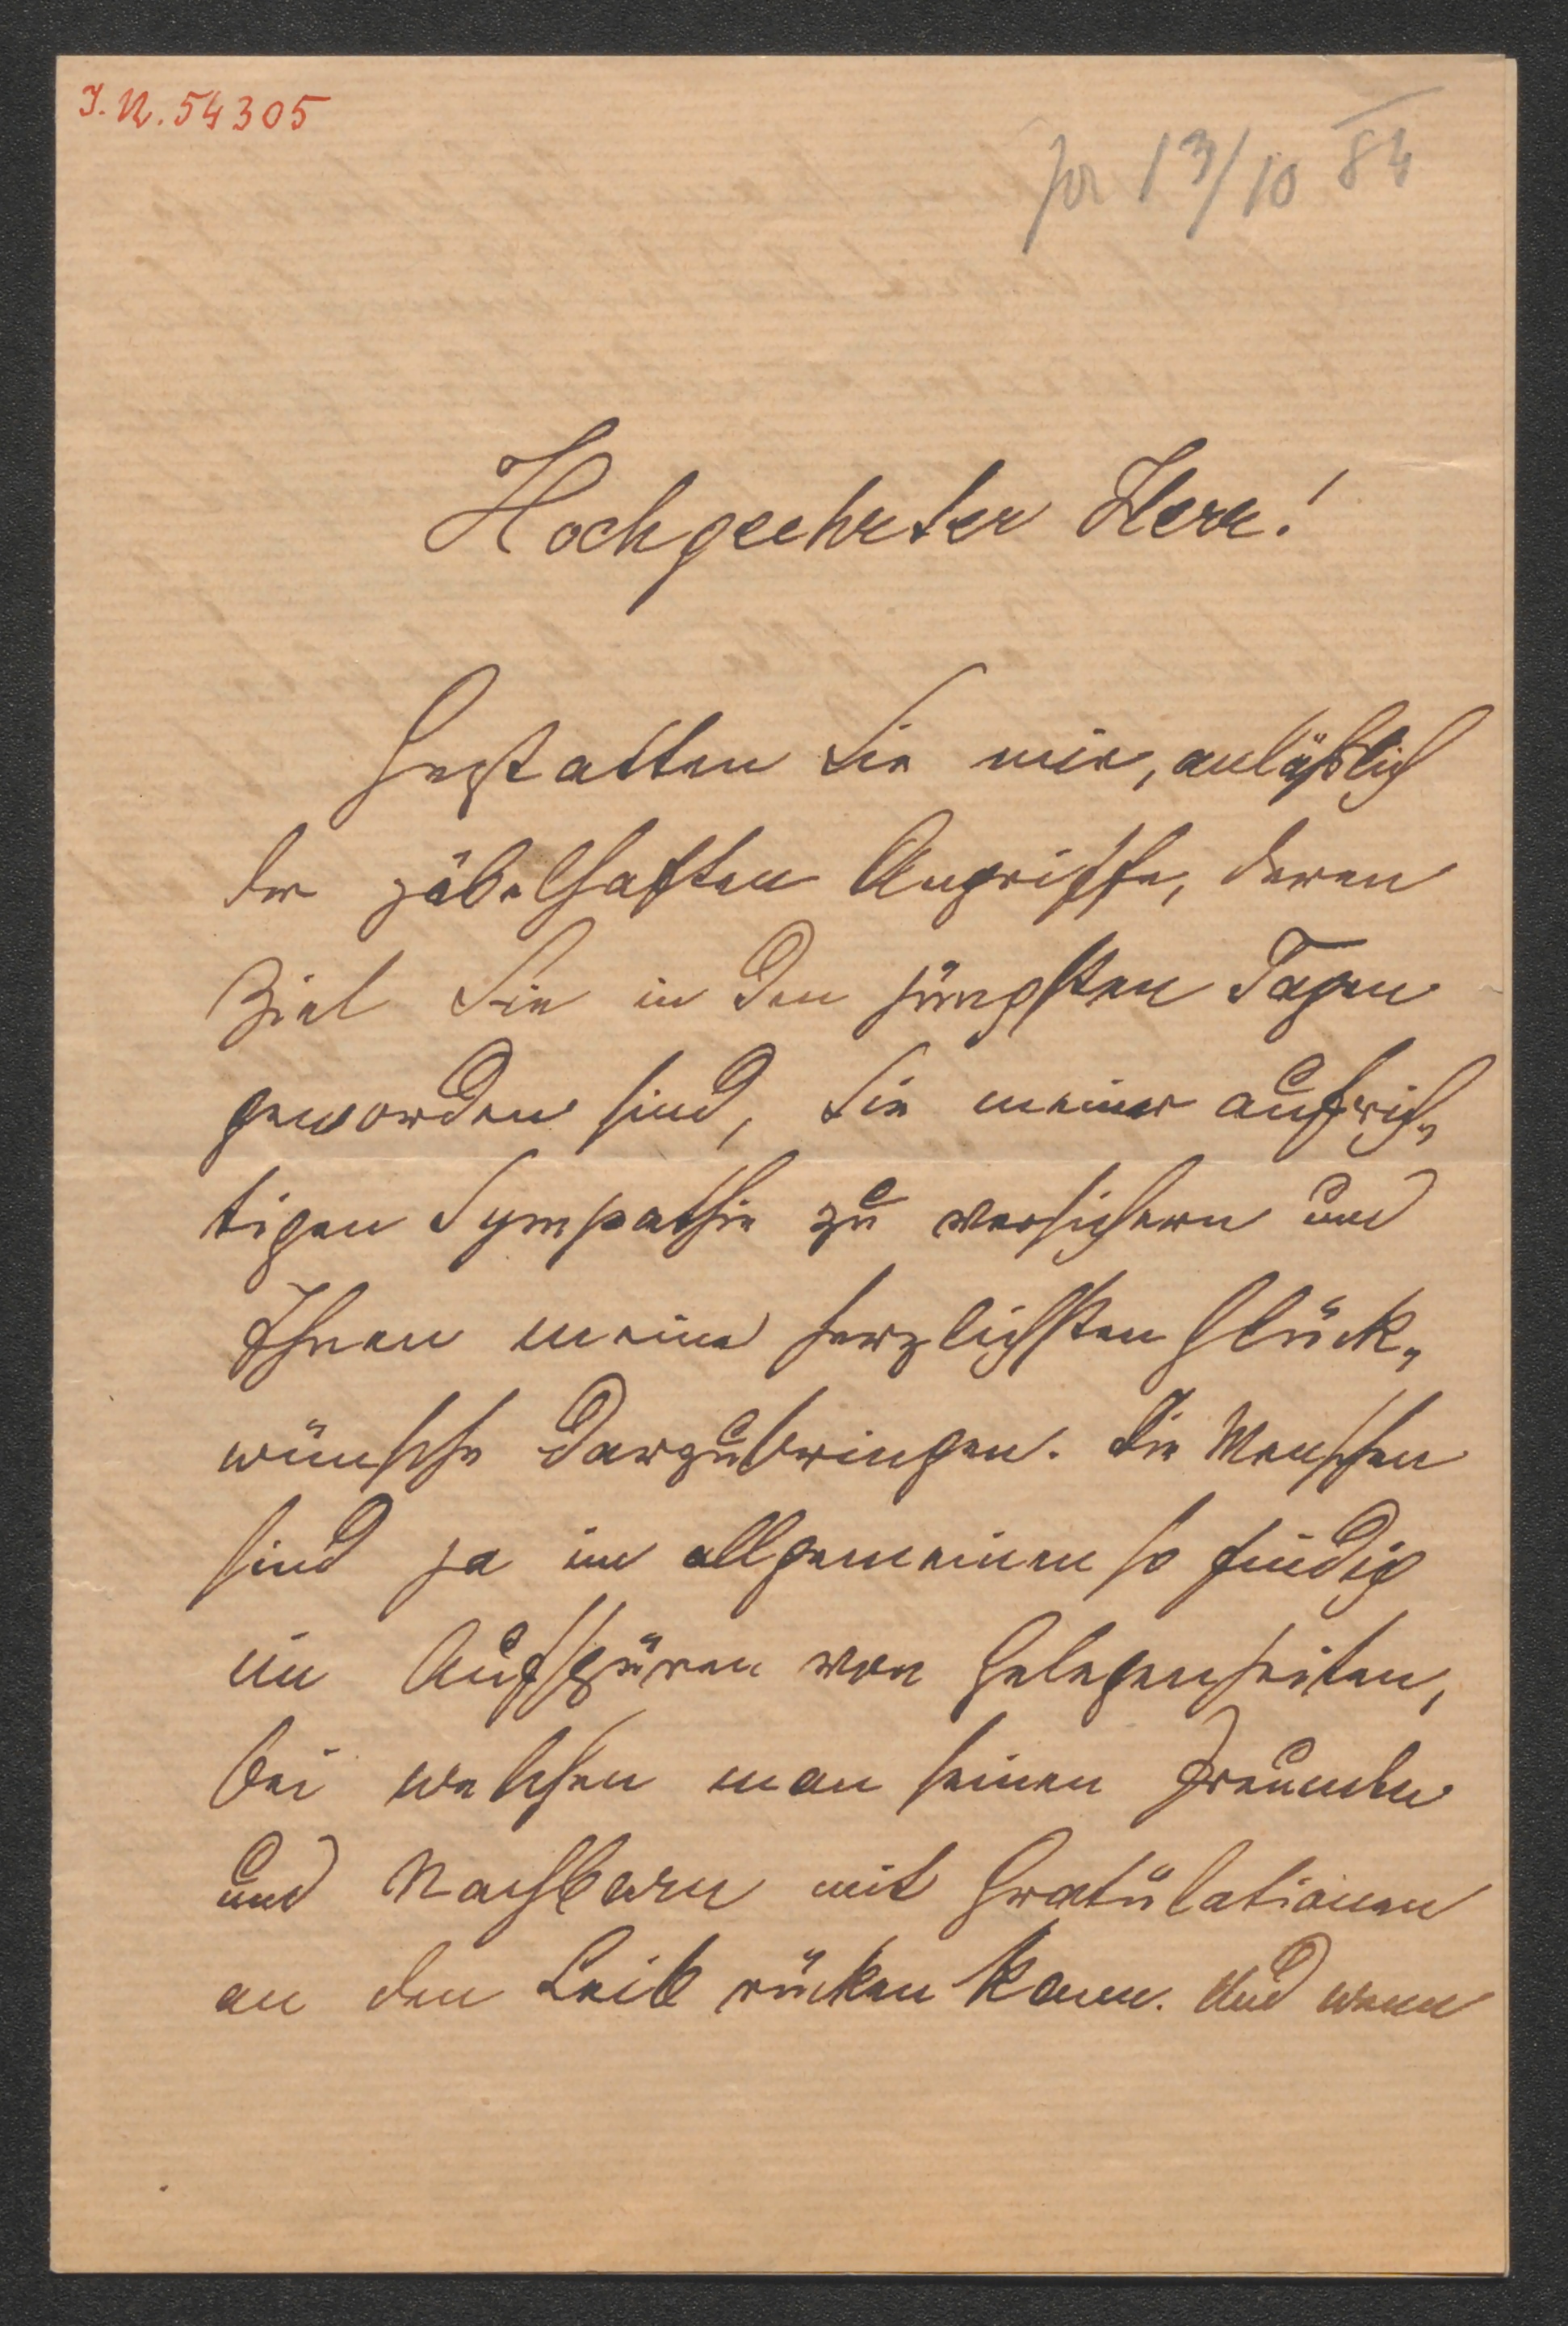 I. N. 54305
pr 13/10 84
Hochgeehrter Herr!
Gestatten Sie mir, anläßlich
der pöbelhaften Angriffe, deren
Ziel Sie in den jüngsten Tagen
geworden sind, Sie meiner aufrich„
tigen Sympathie zu versichern und
Ihnen meine herzlichsten Glück„
wünsche darzubringen. Die Menschen
sind ja im allgemeinen so findig
im Aufspüren von Gelegenheiten,
bei welchen man seinen Freunden
und Nachbarn mit Gratulationen
an den Leib rücken kann. Und wenn